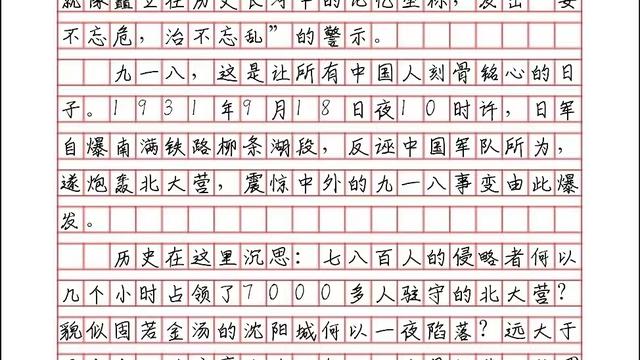 就像矗立在历史长河中的记忆坐标，发出“安
不忘危，治不忘乱”的警示。
九一八，这是让所有中国人刻骨铭心的日
子。1931年9月18日夜10时许，日军
自爆南满铁路柳条湖段，反诬中国军队所为，
遂炮轰北大营，震惊中外的九一八事变由此爆
发。
历史在这里沉思：七八百人的侵略者何以
几个小时占领了7000多人驻守的北大营？
貌似固若金汤的沈阳城何以一夜陷落？远大于